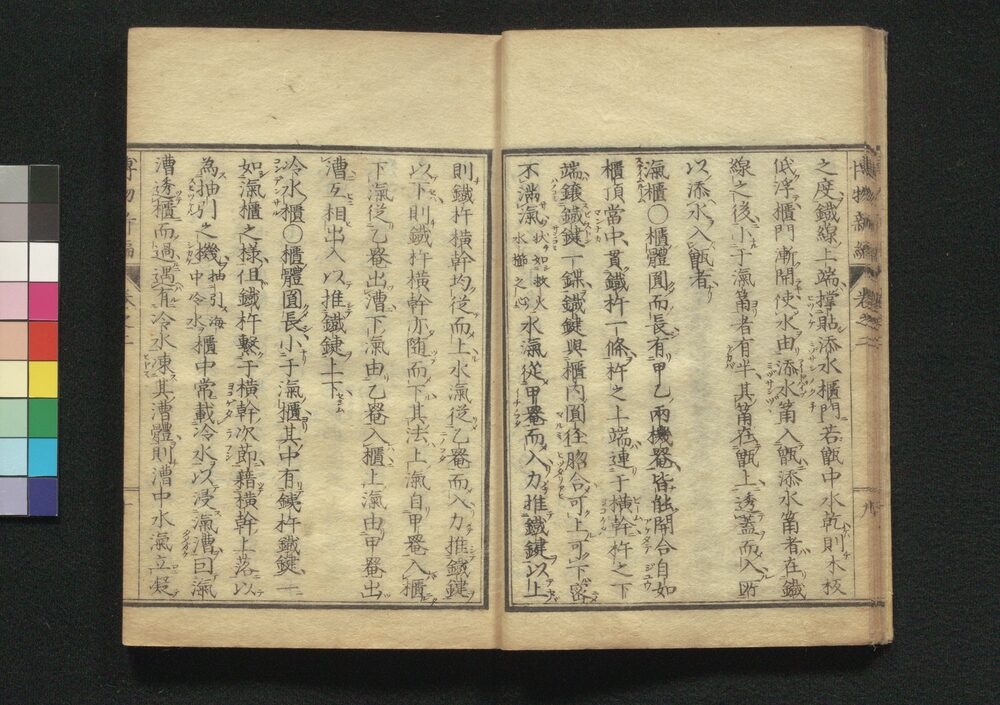 博物新編 卷之二 八
之度鐵線上端撑貼添水櫃門若甑中水乾則木板
低浮櫃門漸開使水由添水筩入甑添水筩者在鐵
線之後小于氣筩者有半其筩在甑上透蓋而入所
以添水入甑者
氣櫃〇櫃體圓而長有甲乙兩機罨皆能開合自如
櫃頂當中貫鐵杵一條杵之上端連于橫幹杵之下
端鑲鐵鍵一鐷鐵鍵與櫃內圓徑脗合可上可下密
不滿氣狀如救火水櫛之心水氣從甲罨而入力推鐵鍵以上
則鐵杵橫幹均從而上水氣從乙罨而入力推鐵鍵
以下則鐵杵橫幹亦隨而下其法上氣自甲罨入櫃
下氣從乙罨出漕下氣由乙罨入櫃上氣由甲罨出
漕互相出入以推鐵鍵上下
冷水櫃〇櫃體圓長小于氣櫃其中有鐵杵鐵鍵一
如氣櫃之樣但鐵杵繫于橫幹次節藉橫幹上落以
為抽引之機抽引海中冷水櫃中常載冷水以浸氣漕囘氣
漕透櫃而過遇有冷水凍其漕體則漕中水氣立凝
博物新編 卷之二